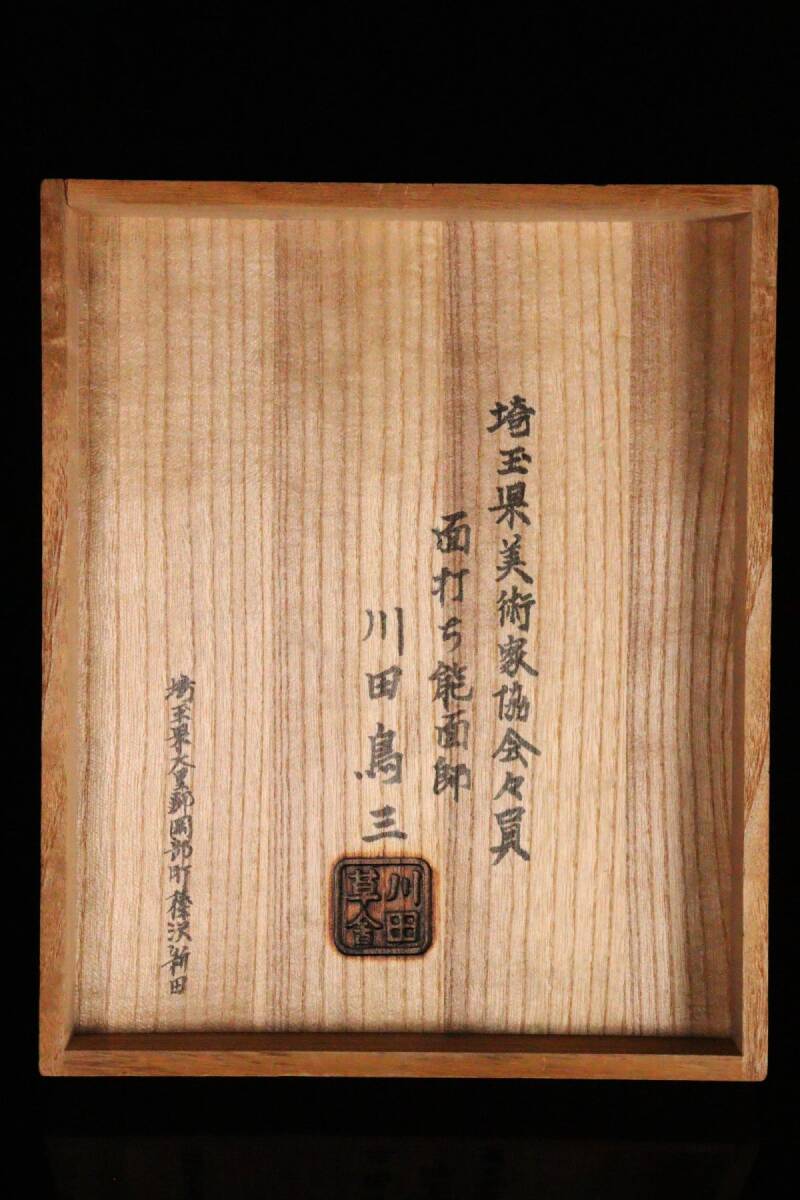 埼玉県美術家協会々員
面打ち能面師
川田鳥三
川田
草舎
埼玉県大里郡岡部町榛沢新田